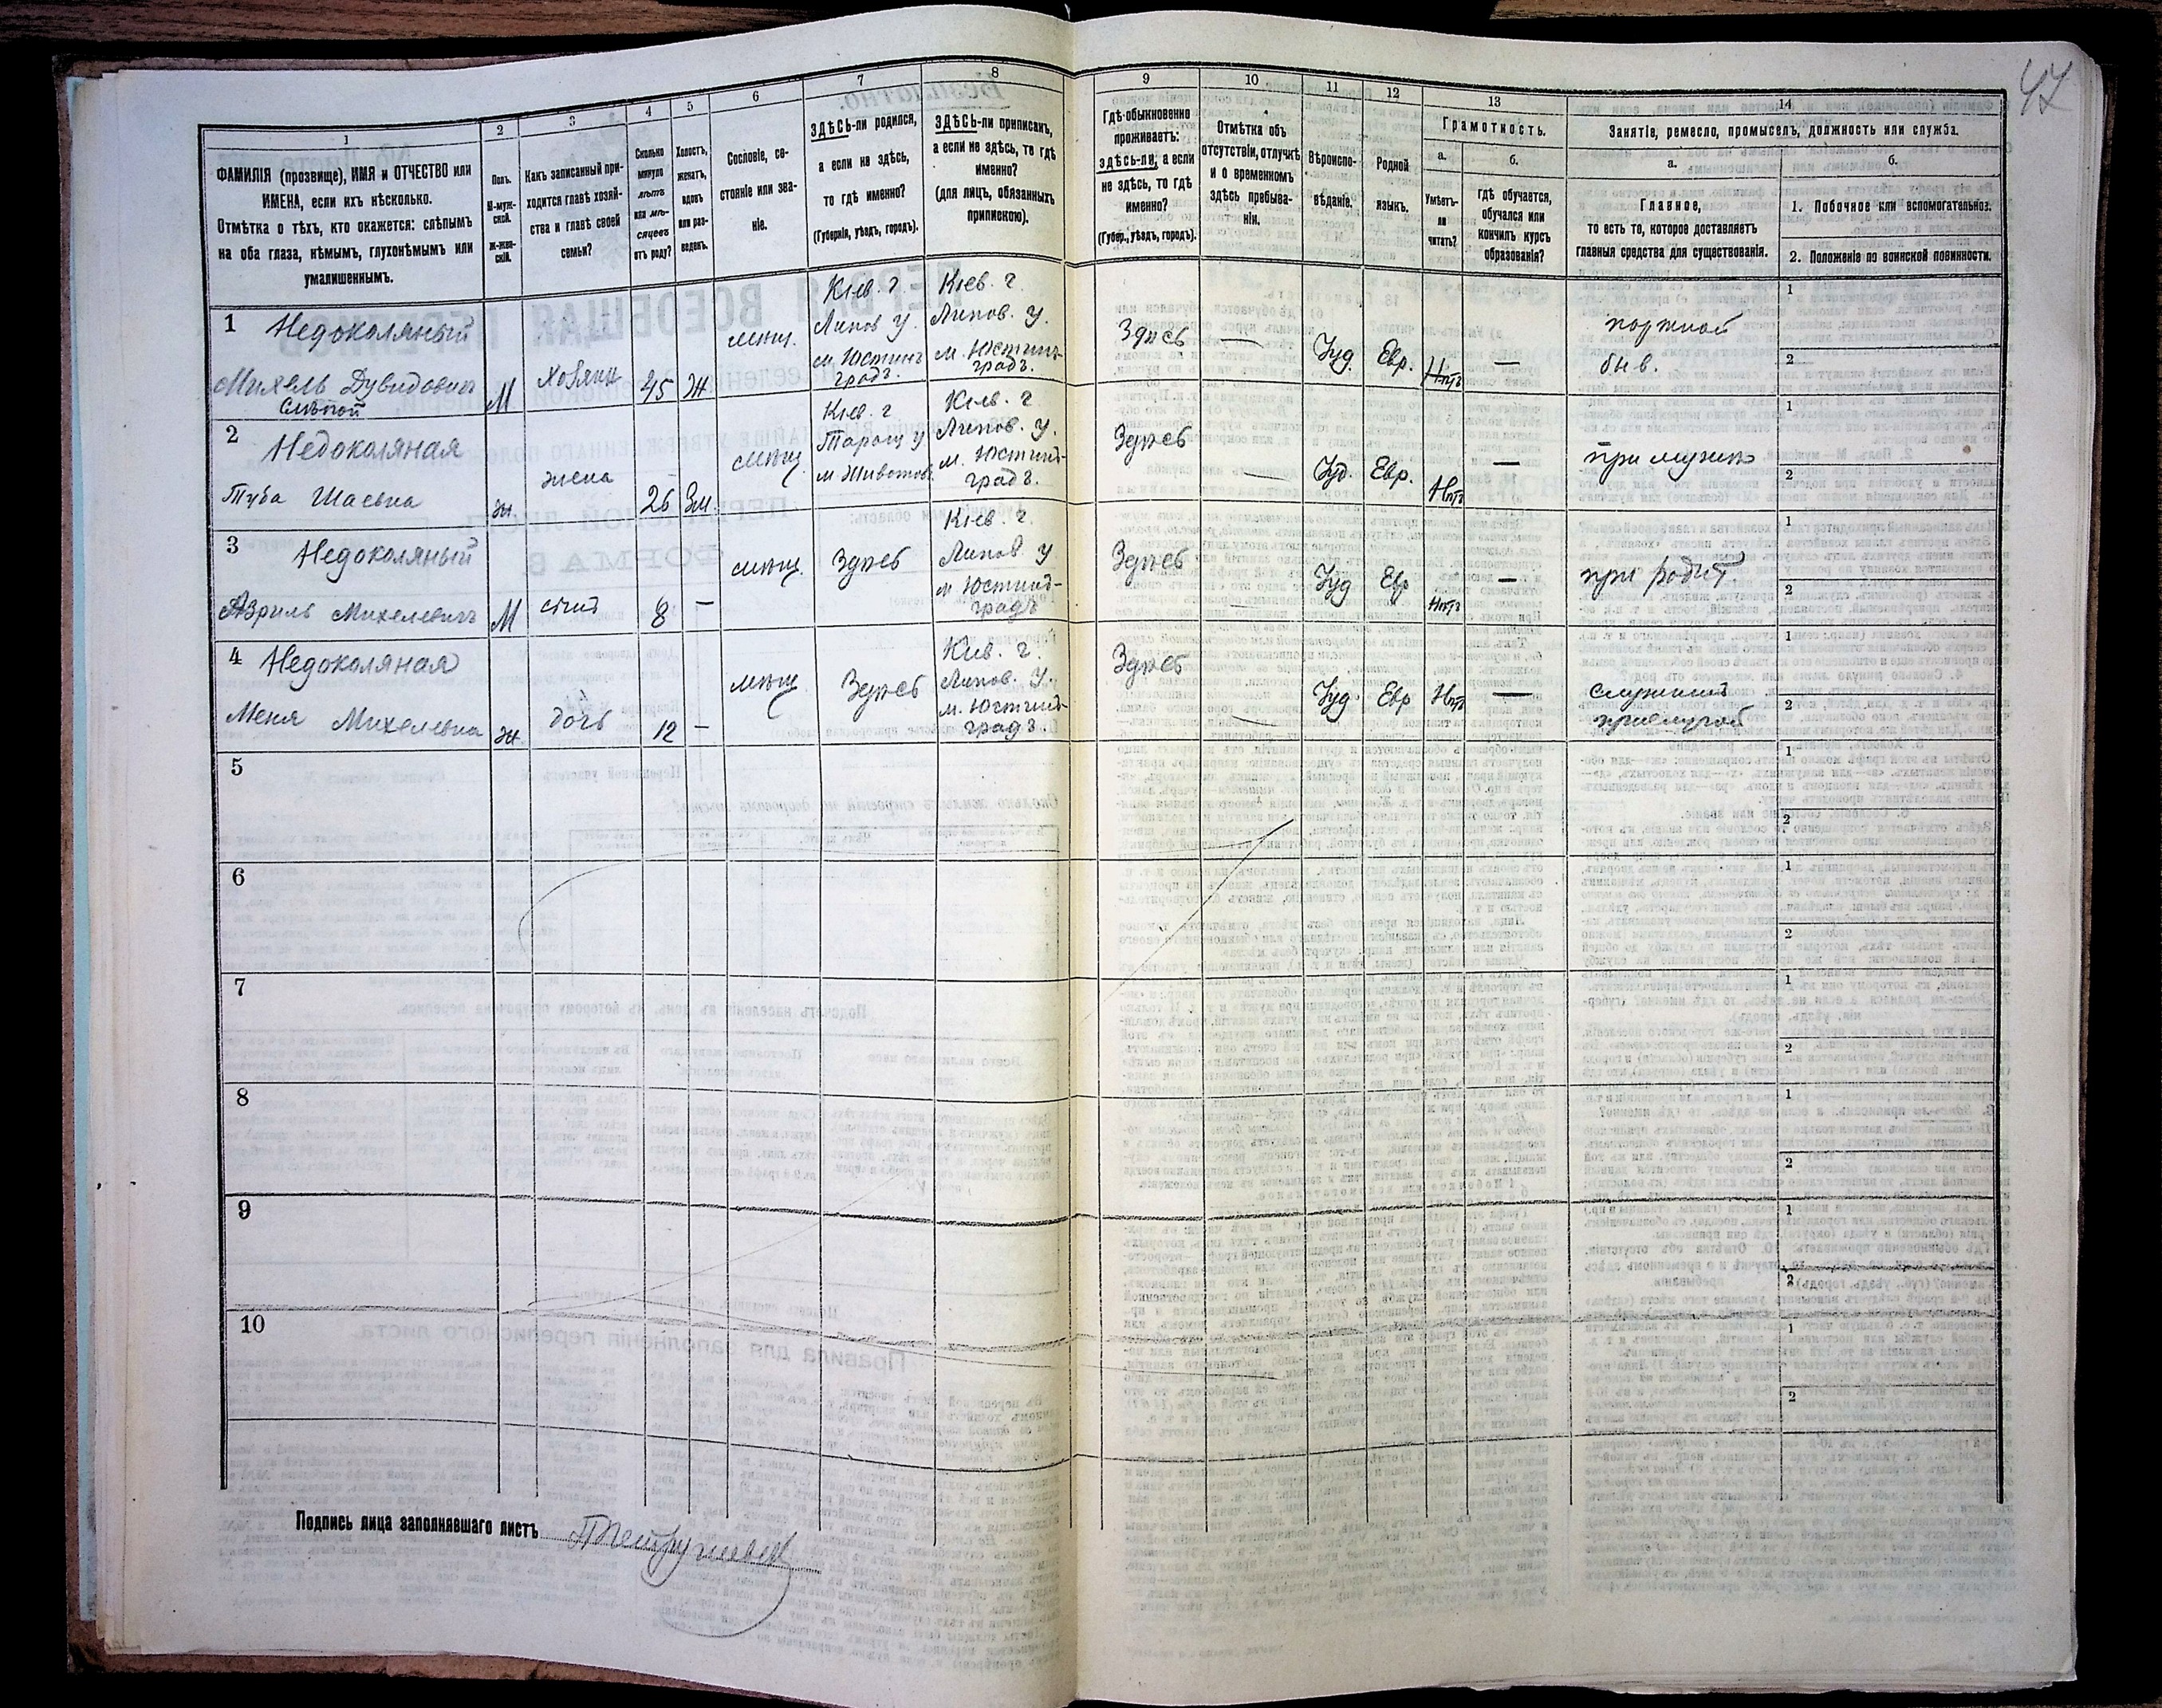 47
1
2
3
4
5
6
7
8
9
10
11
12
13
14
ФАМИЛІЯ (прозвище), ИМЯ и ОТЧЕСТВО или
ИМЕНА, если ихъ нѣсколько.
Отмѣтка о тѣхъ, кто окажется: слѣпымъ
на оба глаза, нѣмымъ, глухонѣмымъ или
умалишеннымъ.
Полъ.
М-муж-
ской.
Ж-жен-
скій.
Какъ записанный при-
ходится главѣ хозяй-
ства и главѣ своей
семьи?
Сколько
минуло
лѣтъ
или мѣ-
сяцевъ
отъ роду?
Холостъ,
женатъ,
вдовъ
или раз-
веденъ.
Сословіе, со-
стояніе или зва-
ніе.
ЗДѢСЬ-ли родился,
а если не здѣсь,
то гдѣ именно?
(Губернія, уѣздъ, городъ).
ЗДѢСЬ-ли приписанъ,
а если не здѣсь, то гдѣ
именно?
(для лицъ, обязанныхъ
припискою).
Гдѣ обыкновенно
проживаетъ:
здѣсь-ли, а если
не здѣсь, то гдѣ
именно?
(Губер., уѣздъ, городъ).
Отмѣтка объ
отсутствіи, отлучкѣ
и о временномъ
здѣсь пребыва-
ніи.
Вѣроиспо-
вѣданіе.
Родной
языкъ.
Грамотность.
а.
Умѣетъ-
ли
читать?
б.
гдѣ обучается,
обучался или
кончилъ курсъ
образованія?
Занятіе, ремесло, промыселъ, должность или служба.
а.
Главное,
то есть то, которое доставляетъ
главныя средства для существованія.
б.
1. Побочное или вспомогательное.
2. Положеніе по воинской повинности.
1 Недоколяный
Михель Дувидовичъ
Слѣпой
М
Хозяин
45
Ж
мѣщ.
Кіев. г.
Липов у.
м. Юстин-
градъ.
Кіев. г.
Липов. у.
м. Юстин-
градъ.
Здѣсь
—
Іуд.
Евр.
Нѣтъ
—
портной
быв.
1
2
2 Недоколяная
Туба Шаевна
ж
жена
26
Зм.
мѣщ.
Кіев. г
Таращ у
м Животов.
Кіев. г.
Липов. у.
м. Юстин-
градъ.
Здѣсь
—
Іуд.
Евр.
Нѣтъ
—
при мужѣ
1
2
3 Недоколяный
Азриль Михелевичъ
М
сынъ
8
—
мѣщ.
Здѣсь
Кіев. г.
Липов у
м Юстин-
градъ
Здѣсь
—
Іуд
Евр
Нѣтъ
—
при родит.
1
2
4 Недоколяная
Меня Михелевна
ж
дочь
12
—
мѣщ
Здѣсь
Кіев. г.
Липов. у.
м. Юстин-
градъ.
Здѣсь
—
Іуд.
Евр
Нѣтъ
—
служитъ
1
2
5
1
2
6
1
2
7
1
2
8
1
2
9
1
2
10
1
2
Подпись лица заполнявшаго листъ